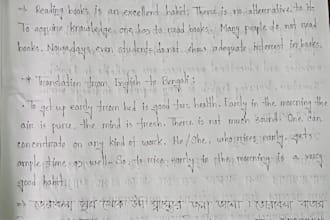 → Reading books is an excellent habit. There is no alternative to it.
To acquire knowledge one has to read books. Many people do not read
books. Nowadays, even students do not show adequate interest in books.
Translation from English to Bengali:
• To get up early from bed is good for health. Early in the morning the
air is pure. the mind is fresh. There is not much sound. One can
concentrate on any kind of work. He/She, who rises early, gets
ample time as well. So, to rise early in the morning is a very
good habit.
→ ভোরবেলা ঘুম থেকে উঠা স্বাস্থ্যের জন্য ভালো। ভোরবেলা বাতাস